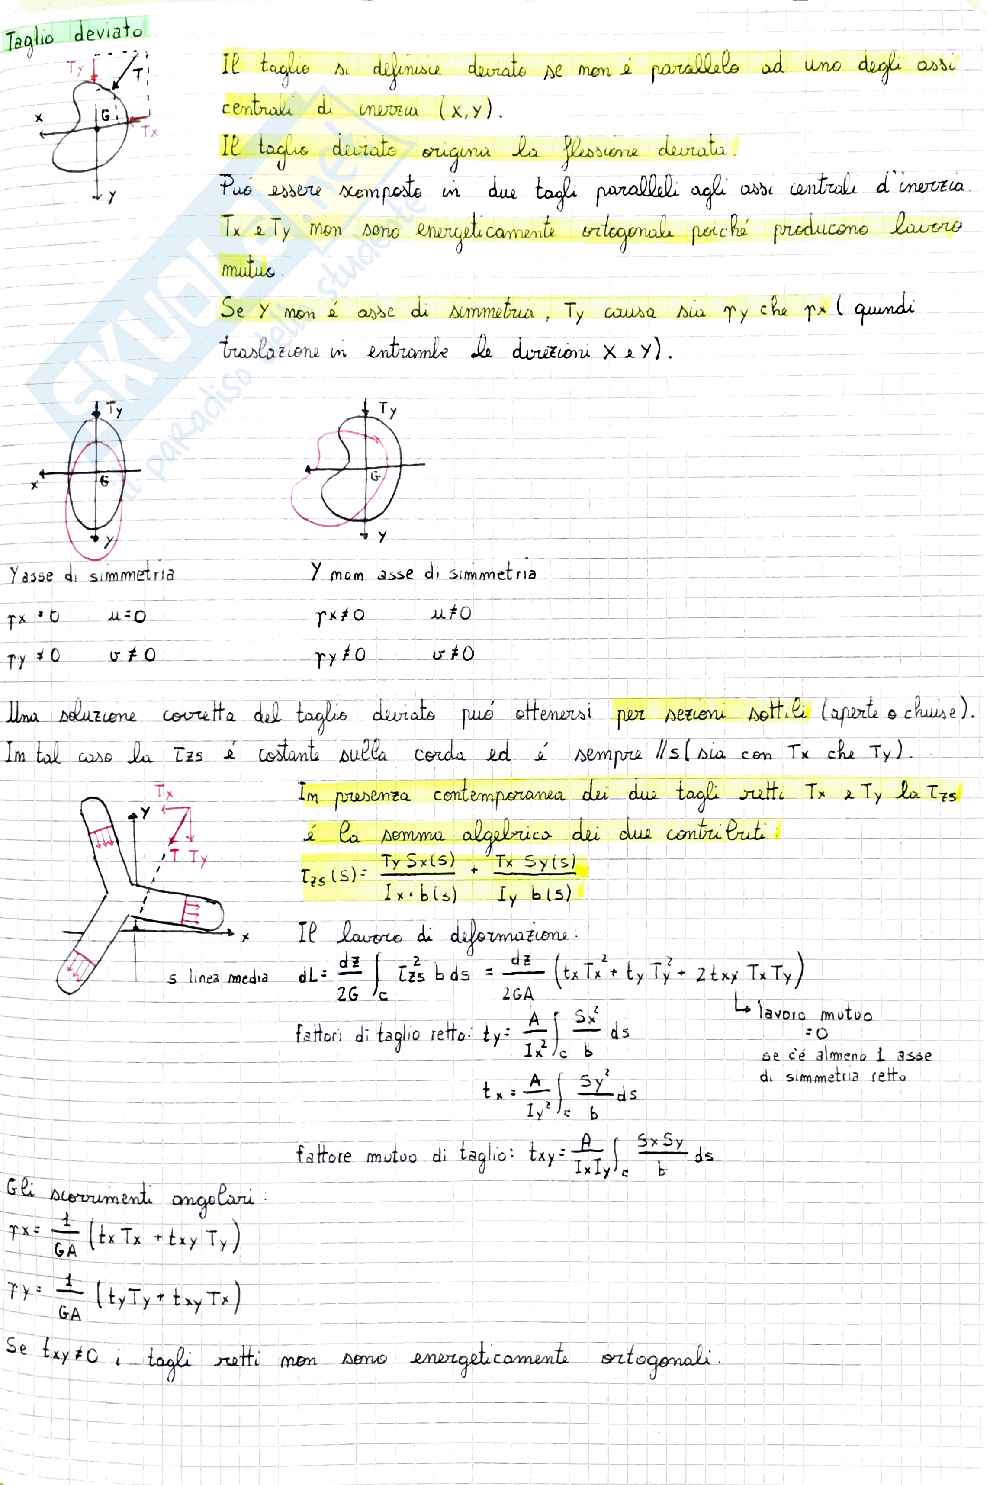 Taglio deviato
Ty T
x G Tx
y
Il taglio si definisce deviato se non é parallelo ad uno degli assi
centrali di inerzia (x,y).
Il taglio deviato origina la flessione deviata.
Puó essere scomposto in due tagli paralleli agli assi centrali d'inerzia.
Tx e Ty non sono energeticamente ortogonali poiché producono lavoro
mutuo.
Se y non é asse di simmetria, Ty causa sia γy che γx ( quindi
traslazione in entrambe le direzioni x e y).
SKUOLA.net
il paradiso dello studente
Ty Ty
x G G
y y
Y asse di simmetria Y non asse di simmetria
γx = 0 u=0 γx≠0 u≠0
γy ≠ 0 v≠0 γy≠0 v≠0
Una soluzione corretta del taglio deviato puó ottenersi per sezioni sottili (aperte o chiuse).
In tal caso la τzs é costante sulla corda ed é sempre //s (sia con Tx che Ty).
In presenza contemporanea dei due tagli retti Tx e Ty la τzs
é la somma algebrica dei due contributi:
τzs(s) = Ty Sx(s) / Ix·b(s) + Tx Sy(s) / Iy b(s)
Tx
y
T Ty
x
s linea media
Il lavoro di deformazione:
dL = dz/2G ∫c τzs² b ds = dz/2GA (tx Tx² + ty Ty² + 2txy TxTy)
↳ lavoro mutuo
=0
se c'é almeno 1 asse
di simmetria retto
fattori di taglio retto: ty = A/Ix² ∫c Sx²/b ds
tx = A/Iy² ∫c Sy²/b ds
fattore mutuo di taglio: txy = A/IxIy ∫c SxSy/b ds
Gli scorrimenti angolari:
γx = 1/GA (tx Tx + txy Ty)
γy = 1/GA (tyTy + txy Tx)
Se txy≠0 i tagli retti non sono energeticamente ortogonali.